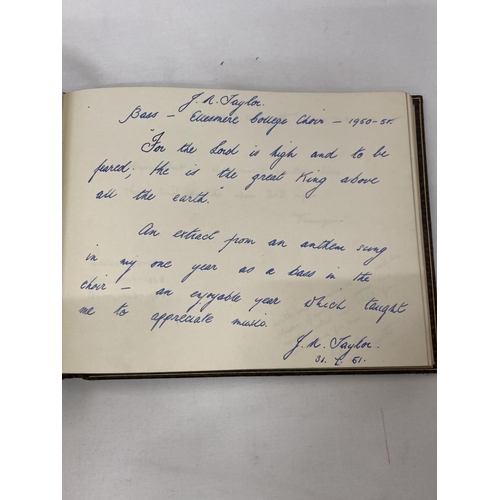 J. N. Taylor.
Bass – Ellesmere College Choir – 1950-51.
"For the Lord is high and to be
feared; He is the great King above
all the earth."
An extract from an anthem sung
in my one year as a bass in the
choir – an enjoyable year which taught
me to appreciate music.
J. N. Taylor.
51.